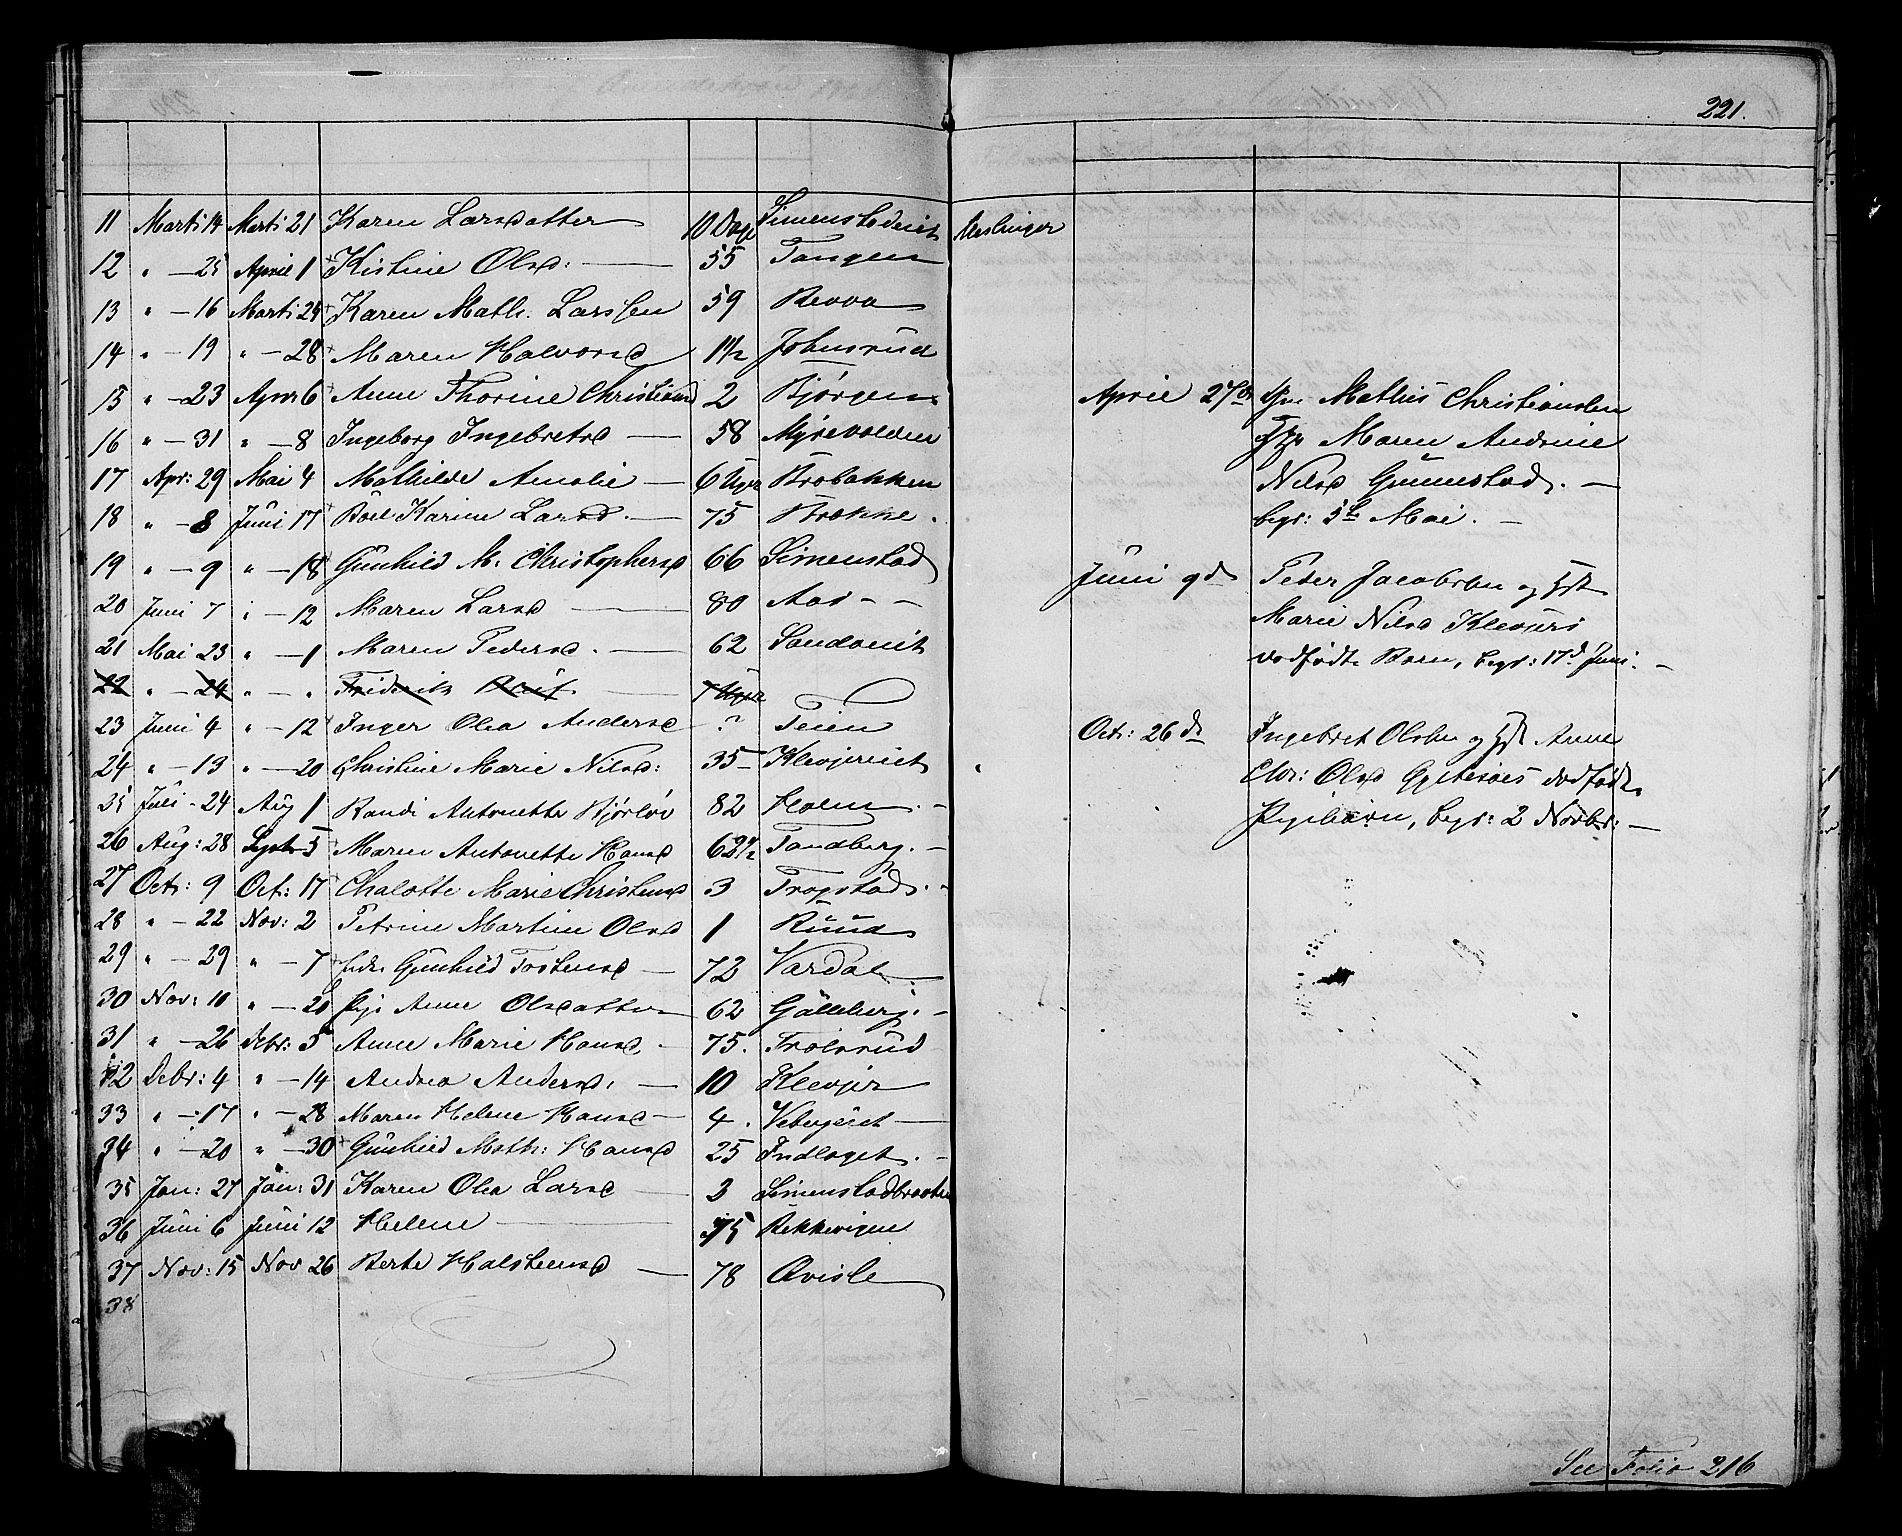 221.
11 Marti 14 Marti 21 Karen Larsdatter 10 Dage Simenstadeiet Meslinger
12 " — 25 April 1 Kistine Olsd: — 55 Tangen
13 " — 16 Marti 24 Karen Math: Larssen 59 Revva
14 " — 19 " — 28 Maren Halvorsd 1 1/2 Johnsrud
15 " — 23 Apr 6 Anne Thorine Christiansd 2 Bjørgen
16 " — 31 " — 8 Ingeborg Ingebretsd — 58 Myrevolden
17 Apr: 29 Mai 4 Mathilde Amalie — 6 Uger Brobakken
18 " — 8 Juni 17 Boel Karine Larsd. — 75 Brekke.
19 " — 9 " — 18 Gunhild M. Christophersd 66 Simenstad
20 Juni 7 " — 12 Maren Larsd — 80 Aas - -
21 Mai 23 " — 1 Maren Pedersd. — 62 Sandaeiet
22 " — 24 " — " Friderik — 7 Uger
23 Juni 4 " — 12 Inger Olea Andersd — ? Teien
24 " — 13 " — 20 Christine Marie Nilsd: 35 — Klevjereiet
25 Juli - 24 Aug 1 Randi Antonette Bjørløv 82 Holm. -
26 Aug: 28 Septr 5 Maren Antonette Hansd 62 1/2 Tandberg. -
27 Octr: 9 Oct: 17 Chalotte Marie Christensd 3 Trogstad. -
28 " — 22 Nov: 2 Petrine Martine Olsd 1 Ruud
29 " — 29 " — 7 Gunhild Tostensd — 72 Vardal
30 Nov: 10 " — 20 Pige Anne Olsdatter 62 Gulleberg. -
31 " — 26 Debr: 5 Anne Marie Hansd. 75. Trolsrud
32 Debr: 4 " — 14 Andrea Andersd: — 10 Klevjer
33 " — 17 " — 28 Maren Helene Hansd — 4.
34 " — 20 " — 30 Gunhild Math: Hansd 25 Indlaget. -
35 Jan: 27 Jan: 31 Karen Olea Larsd — 3 Simenstadbraaten
36 Juni 6 Juni 12 Helene — 75 Rekkevigen
37 Nov: 15 Nov 26 Berte Halstensd — 78 Qvisle
38
April 27de Mathis Christiansen
Maren Andrine
Nilsd Gunnestad. —
begr: 5te Mai. —
Juni 9de Peder Jacobsen og Hst
Marie Nilsd Klevjers
dødfødte Barn, begr: 17d Juni. —
Octr: 26de Ingebret Olsen og Hst Anne
Chr: Olsd dødfødte
Pigebarn, begr: 2 Novbr: —
See Folio 216